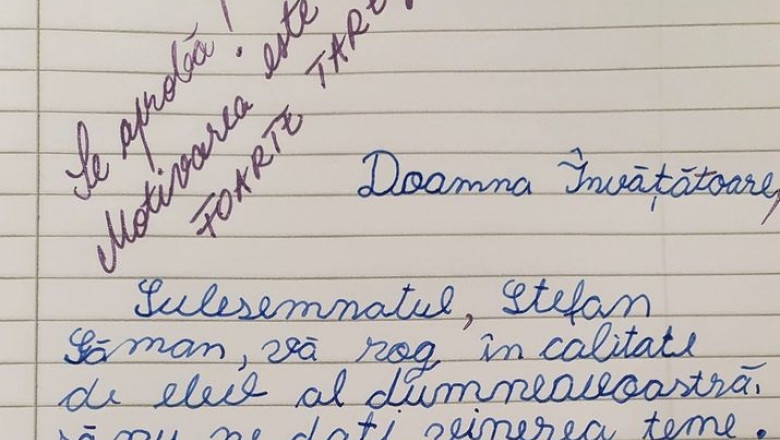 Se aprobă!
Motivarea este
FOARTE TARE
Doamna Învățătoare,
Sulesemnatul, Ștefan
Găman, vă rog în calitate
de elev al dumneavoastră,
să nu ne dați vinerea teme.